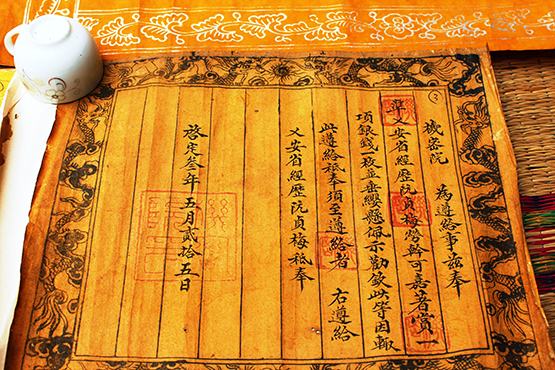 機密院 為遵給事茲奉
準乂安省經歷阮貞梅勞幹可嘉著賞一
項銀錢枚並垂纓懸佩示勸欽此等因輒
此遵給祗奉須至遵給者 右遵給
乂安省經歷阮貞梅祗奉
啓定叁年五月貳拾五日